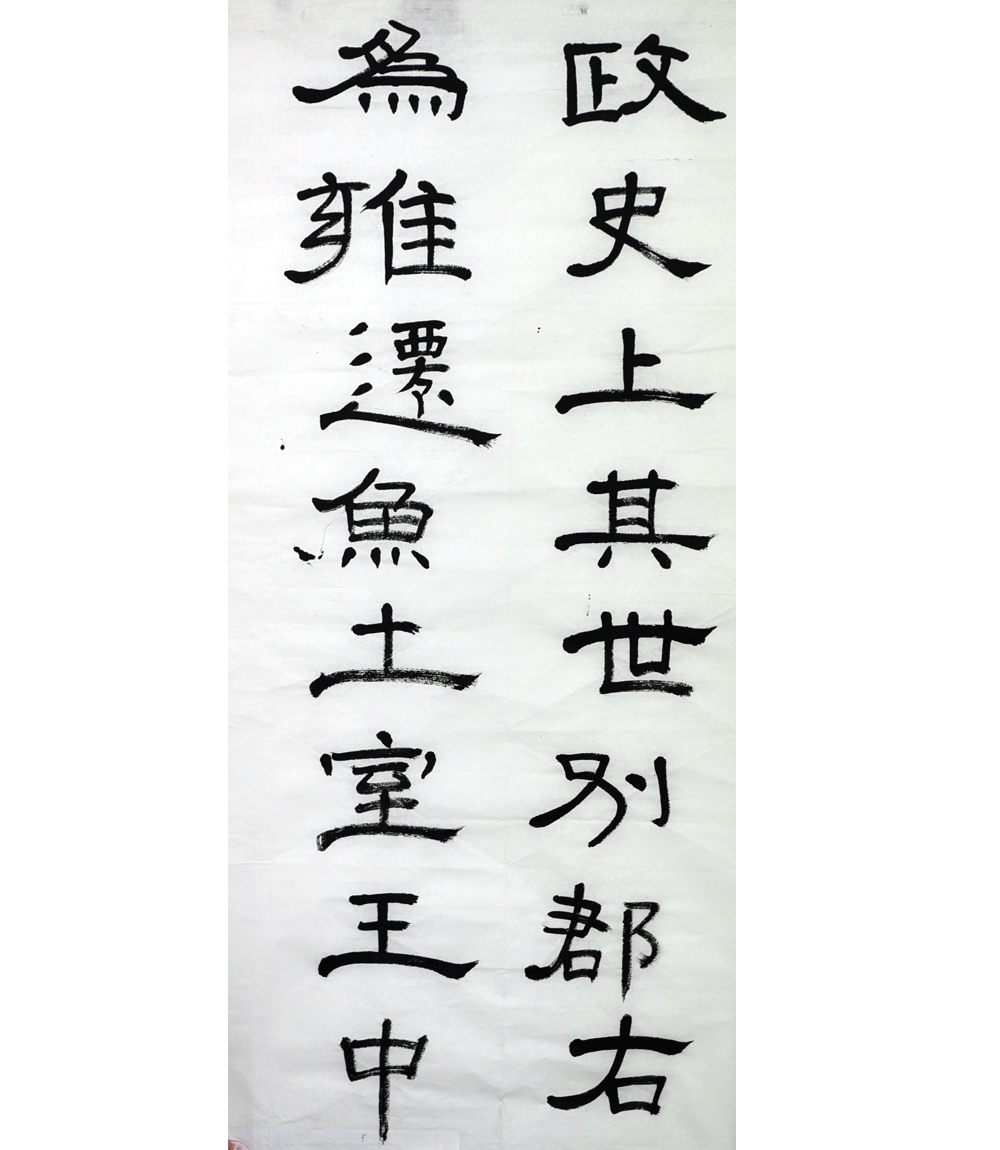 政史上其世別郡右
為雍遷魚土室王中